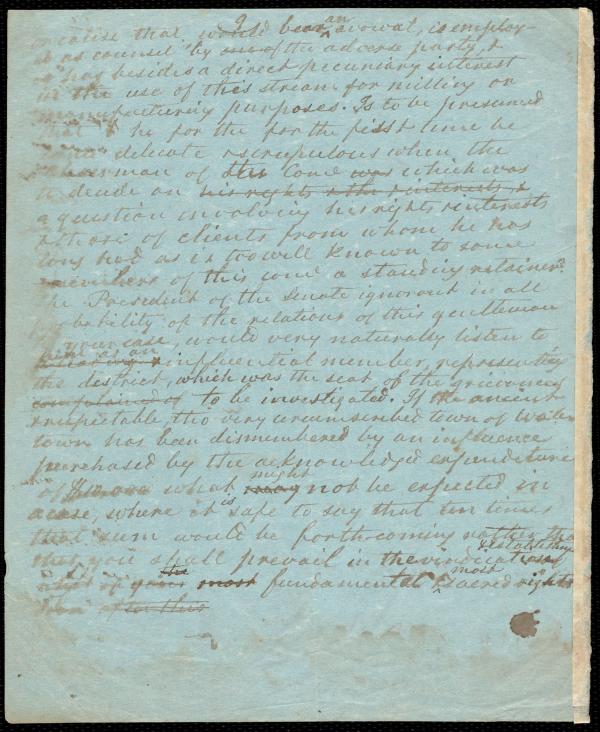 that would bear an avowal, is employ-
as counsel by one of the adverse party, &
has besides a direct pecuniary interest
in the use of this stream for milling or
manufacturing purposes. Is to be presumed
that he for the for the first time be
delicate & scrupulous when the
chairman of this Come was which was
to decide on his rights & the interests &
a question involving his rights & interests
& those of clients from whom he has
long had as is too well known to some
members of this come a standing retainer?
The President of the Senate ignorant in all
probability of the relations of this gentleman
your case, would very naturally listen to
as an influential member, representing
the district, which was the seat of the grievances
complained of to be investigated. If the ancient
respectable, tho very circumscribed town of Water
town has been dismembered by an influence
purchased by the acknowledged expenditure
of what may might not be expected in
a case, where it is safe to say that ten times
that sum would be forthcoming rather than
that you shall prevail in the vindication
establishing
of your the most fundamental & most sacred rights